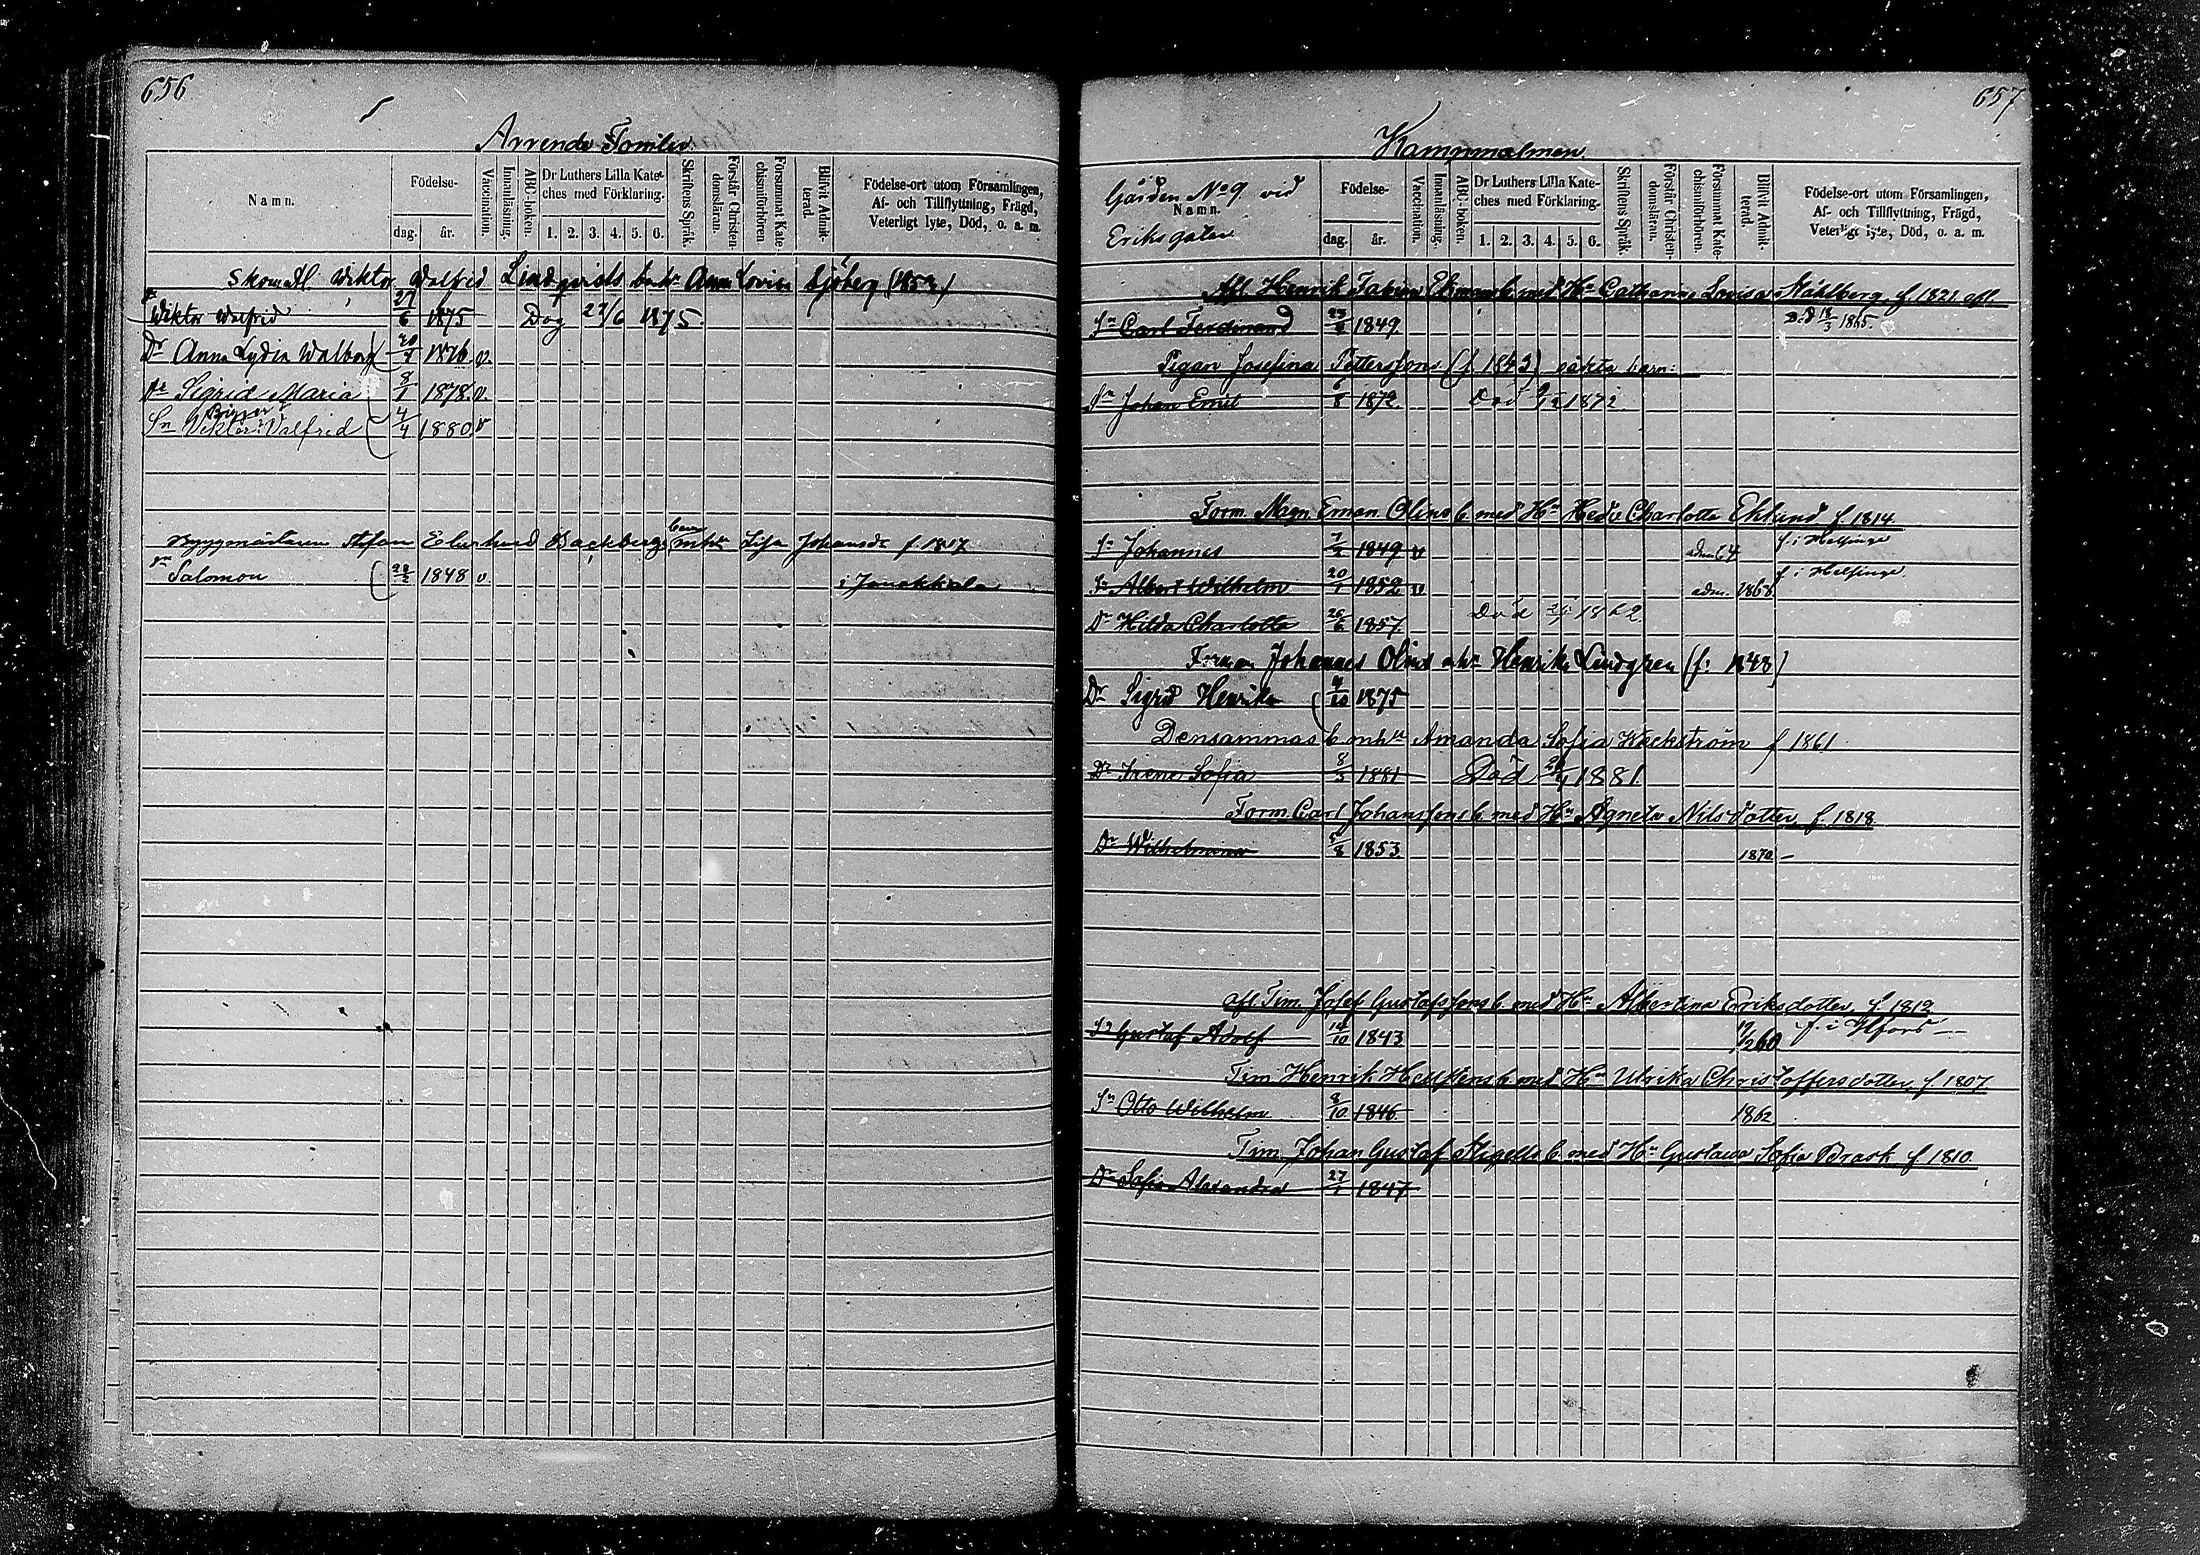 656
Arrende Tomter
Namn.
Födelse-
dag. år.
Vaccination.
Innanläsning.
ABC-boken.
Dr Luthers Lilla Kate-
ches med Förklaring.
1. 2. 3. 4. 5. 6.
Skriftens Språk.
Förstår Christen-
domsläran.
Försummat Kate-
chismiförhören.
Blifvit Admit-
terad.
Födelse-ort utom Församlingen,
Af- och Tillflyttning, Frägd,
Veterligt lyte, Död, o. a. m.
Wiktor Walfrid Lindqvists Anna Lovisa Sjöberg (1853)
Wiktor Walfrid 27/6 1875 Dog 27/6 1875.
Dr Anna Lydia Walborg 20/7 1876 v
Dr Sigrid Maria 8/1 1878 v
Birger
Sn Viktor Valfrid 4/4 1880 v
Byggmästaren Stefan Backbergs barn mhu Lisa Johansdr f 1817
Sn Salomon 1848 v i Janakkala
657
Kampmalmen.
Gården No 9 vid
Namn.
Eriksgatan
Födelse-
dag. år.
Vaccination.
Innanläsning.
ABC-boken.
Dr Luthers Lilla Kate-
ches med Förklaring.
1. 2. 3. 4. 5. 6.
Skriftens Språk.
Förstår Christen-
domsläran.
Försummat Kate-
chismiförhören.
Blifvit Admit-
terad.
Födelse-ort utom Församlingen,
Af- och Tillflyttning, Frägd,
Veterligt lyte, Död, o. a. m.
Afl. Henrik Ekmans b med Hu Catharina Lovisa Ståhlberg f. 1821 afl.
Sn Carl Ferdinand 1849 18/3 1865.
Pigan Josefina Pettersons (f 1843) oäkta barn:
Sn Johan Emil 6/8 1872. Död 1872
Form. Magn. Eman. Olins b med Hu Hedv Charlotta Eklund f 1814
Sn Johannes 1849 v adm 64 f. i Helsinge
Sn Albert Wilhelm 20/1 1852 v adm. 1868 f. i Helsinge.
Dr Hilda Charlotta 26/6 1857 Död 1862
Forman Johannes Olins mhu Henrika Lindgren (f. 1848)
Dr Sigrid Henrika 1875
Densammas b mhu Amanda Sofia Weckström f 1861
Dr Irene Sofia 8/3 1881 Död 1881
Form Carl Johanssons b med Hu Agneta Nilsdotter f. 1818
Dr Wilhelmina 5/8 1853 1870 –
afl Tim. Josef Gustafssons b med Hu Albertina Eriksdotter f 1813
Sn Gustaf Adolf 14/10 1843 f. i Hfors
Tim Henrik b med Hu Ulrika Christoffersdotter f 1807
Sn Otto Wilhelm 8/10 1846 1862
Tim. Johan Gustaf Stigells b med Hu Gustava Sofia Brask f 1810
Dr Sofia Alexandra 27/1 1847